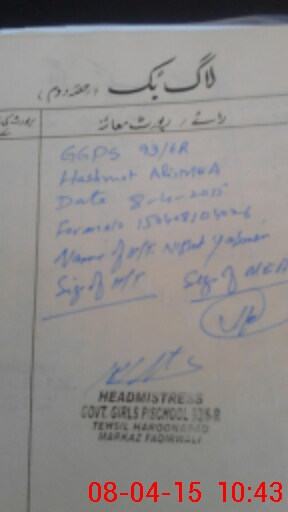 لاگ بک (حصہ دوم)
رائے / رپورٹ معائنہ
GGPS 93/6R
Hashmat Ali MEA
Date 8-4-2015
Name of H/T. Yasmeen
Sig of H/T Sig of MEA
HEADMISTRESS
GOVT. GIRLS P/SCHOOL 93/6-R
TEHSIL HAROONABAD
MARKAZ FAQIRWALI
08-04-15 10:43